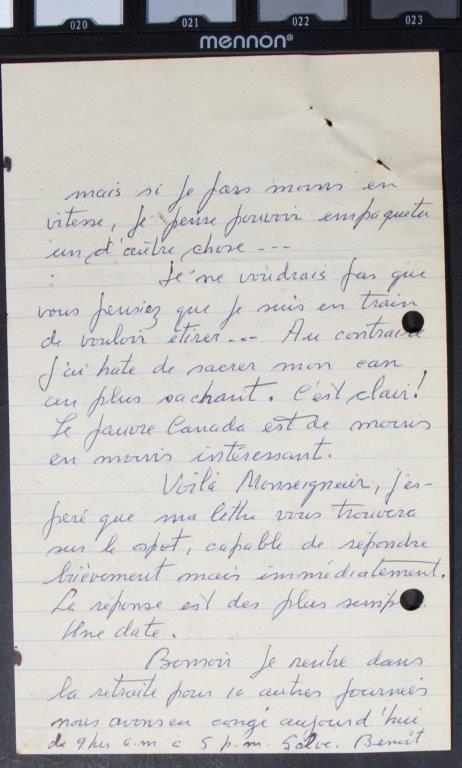 020 021 022 023
mennon®
mais si je fais moins en
vitesse, je pense pouvoir empaqueter
un d'autre chose ---
Je ne voudrais pas que
vous pensiez que je suis en train
de vouloir étirer --- Au contraire
j'ai hate de sacrer mon can
au plus sachant. C'est clair!
Le pauvre Canada est de moins
en moins intéressant.
Voilà Monseigneur, j'es-
père que ma lettre vous trouvera
sur le spot, capable de répondre
brièvement mais immédiatement.
La réponse est des plus
Une date.
Bonsoir je rentre dans
la retraite pour 10 autres journées
nous avons eu congé aujourd'hui
de 9 hrs a.m à 5 p.m. Salve. Benoît